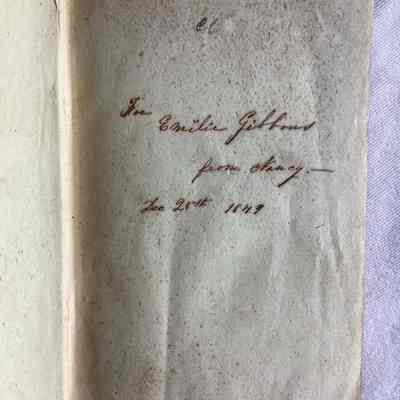 For
Emilie Gibbons
from Nancy.—
Dec 25th 1849